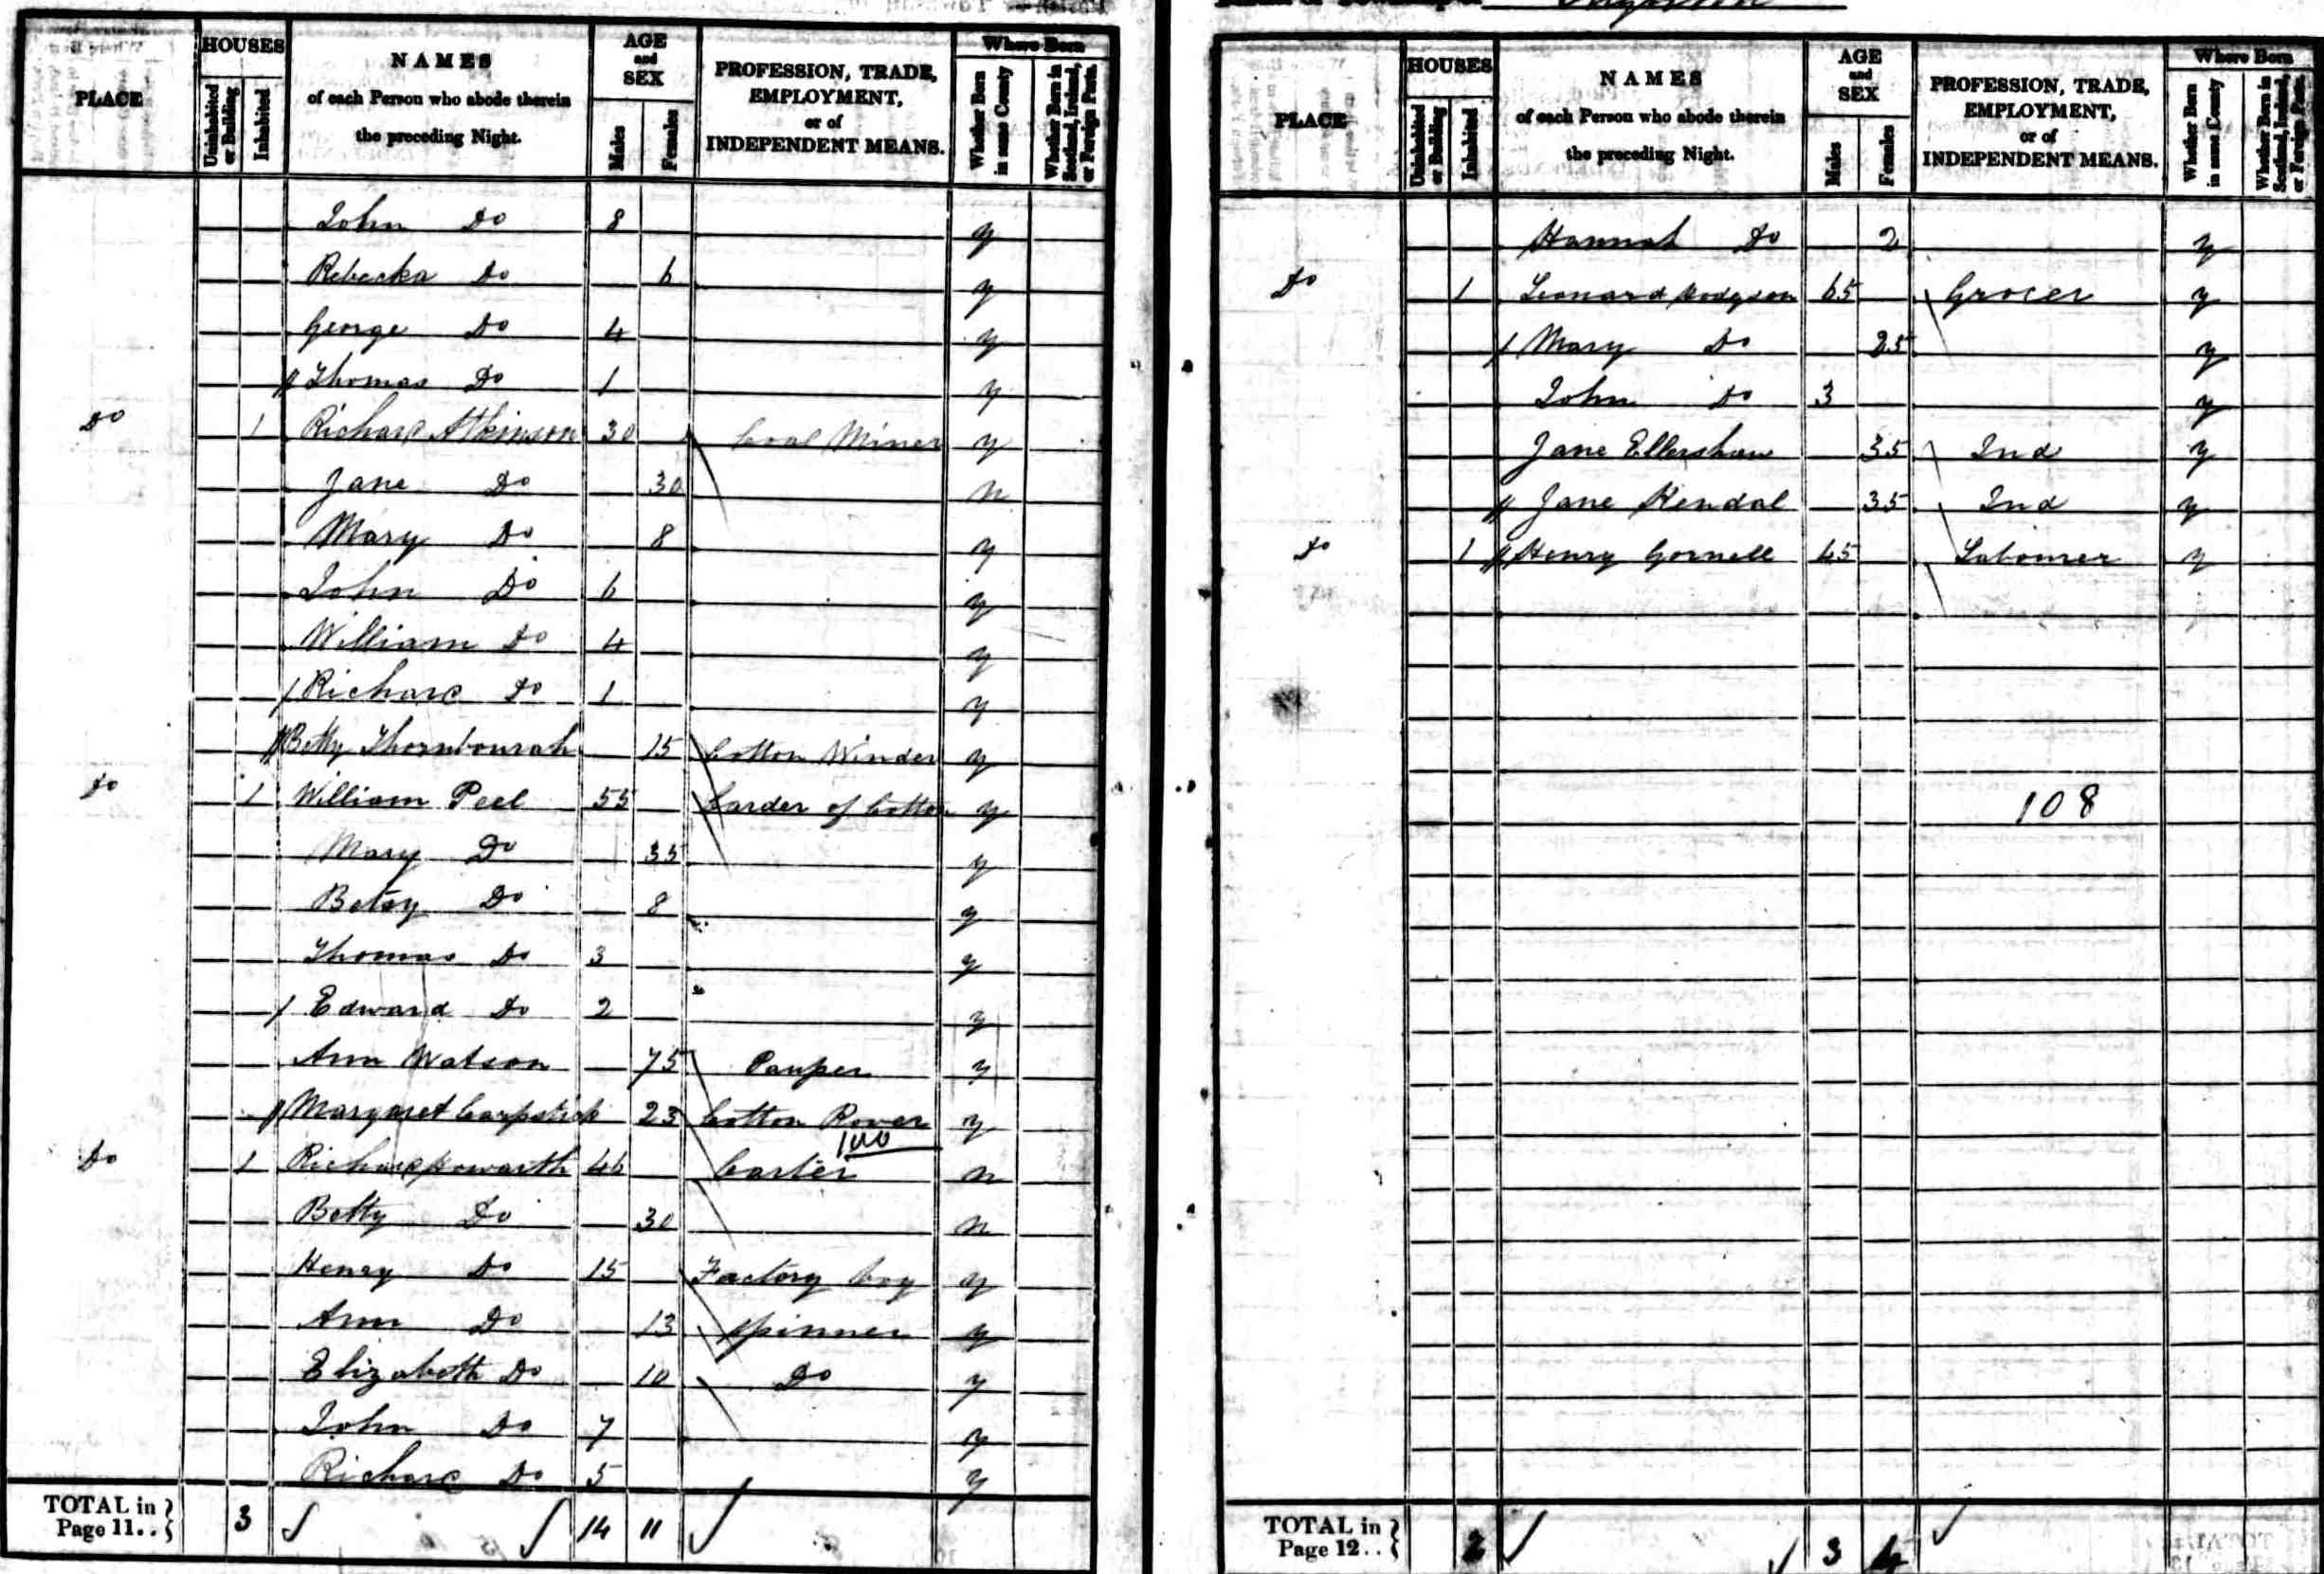 PLACE
HOUSES
Uninhabited or Building
Inhabited
NAMES
of each Person who abode therein
the preceding Night.
AGE
and
SEX
Males
Females
PROFESSION, TRADE,
EMPLOYMENT,
or of
INDEPENDENT MEANS.
Where Born
Whether Born in same County
Whether Born in Scotland, Ireland, or Foreign Parts.
John Do 8 y
Rebecka Do 6 y
George Do 4 y
Thomas Do 1 y
Do 1 Richard Atkinson 30 Coal Miner y
Jane Do 30 n
Mary Do 8 y
John Do 6 y
William Do 4 y
Richard Do 1 y
Betty Thornbourah 15 Cotton Winder y
Do 1 William Peel 55 Carder of Cotton y
Mary Do 35 y
Betsy Do 8 y
Thomas Do 3 y
Edward Do 2 y
Ann Watson 75 Pauper y
Margaret 23 Cotton Rover y
100
Do 1 Richard Howarth 46 Carter n
Betty Do 30 n
Henry Do 15 Factory boy y
Ann Do 13 Spinner y
Elizabeth Do 10 Do y
John Do 7 y
Richard Do 5 y
TOTAL in
Page 11.. 3 14 11
PLACE
HOUSES
Uninhabited or Building
Inhabited
NAMES
of each Person who abode therein
the preceding Night.
AGE
and
SEX
Males
Females
PROFESSION, TRADE,
EMPLOYMENT,
or of
INDEPENDENT MEANS.
Where Born
Whether Born in same County
Whether Born in Scotland, Ireland, or Foreign Parts.
Hannah Do 2 y
Do 1 Leonard Hodgson 65 Grocer y
Mary Do 25 y
John Do 3 y
Jane Ellershaw 35 Ind y
Jane Kendal 35 Ind y
Do 1 Henry Gornell 45 Labourer y
108
TOTAL in
Page 12.. 2 3 4